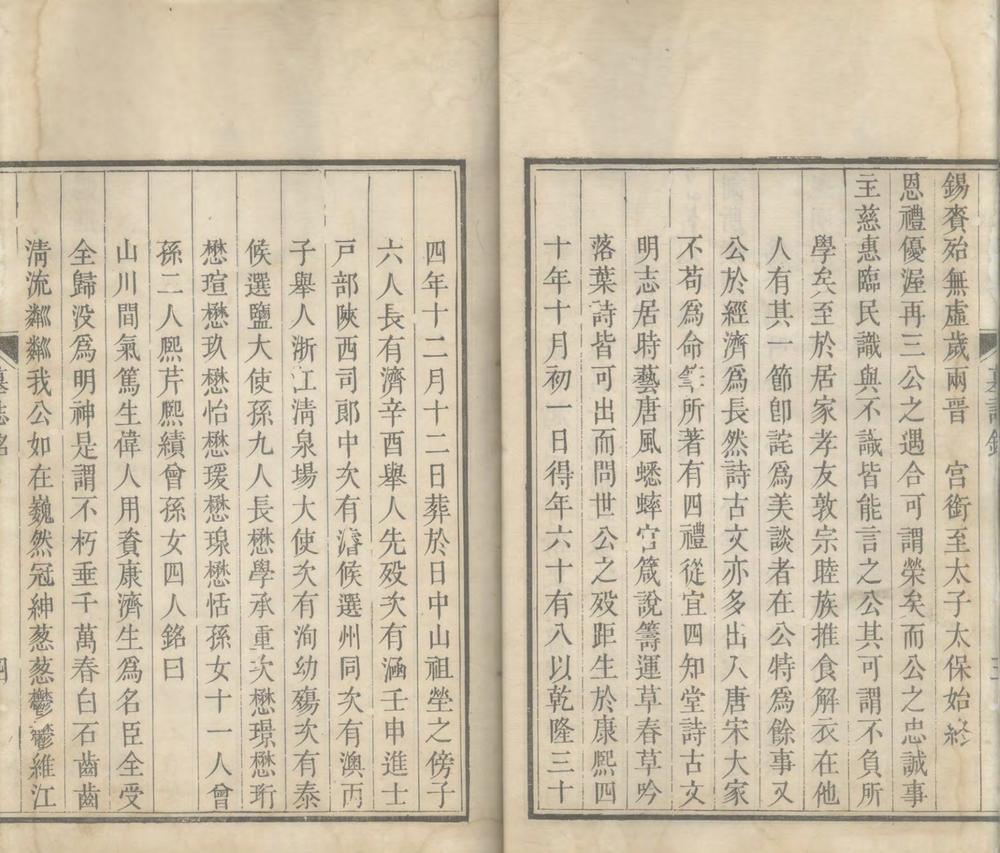 錫賚殆無虛歲兩晉　宮銜至太子太保始終
恩禮優渥再三公之遇合可謂榮矣而公之忠誠事
主慈惠臨民識與不識皆能言之公其可謂不負所
學矣至於居家孝友敦宗睦族推食解衣在他
人有其一節卽詫爲美談者在公特爲餘事又
公於經濟爲長然詩古文亦多出入唐宋大家
不苟爲命筆所著有四禮從宜四知堂詩古文
明志居時藝唐風蟋蟀宫箴說籌運草春草吟
落葉詩皆可出而問世公之歿距生於康熙四
十年十月初一日得年六十有八以乾隆三十
四年十二月十二日葬於日中山祖塋之傍子
六人長有濟辛酉舉人先歿次有涵壬申進士
戸部陝西司郎中次有濬候選州同次有澳丙
子舉人浙江淸泉場大使次有洵幼殤次有泰
候選鹽大使孫九人長懋學承重次懋璟懋珩
懋瑄懋玖懋怡懋瑗懋琅懋恬孫女十一人曾
孫二人熙芹熙績曾孫女四人銘曰
山川間氣篤生偉人用賚康濟生爲名臣全受
全歸没爲明神是謂不朽垂千萬春白石齒齒
淸流粼粼我公如在巍然冠紳葱葱鬱鬱維江
墓誌銘
四